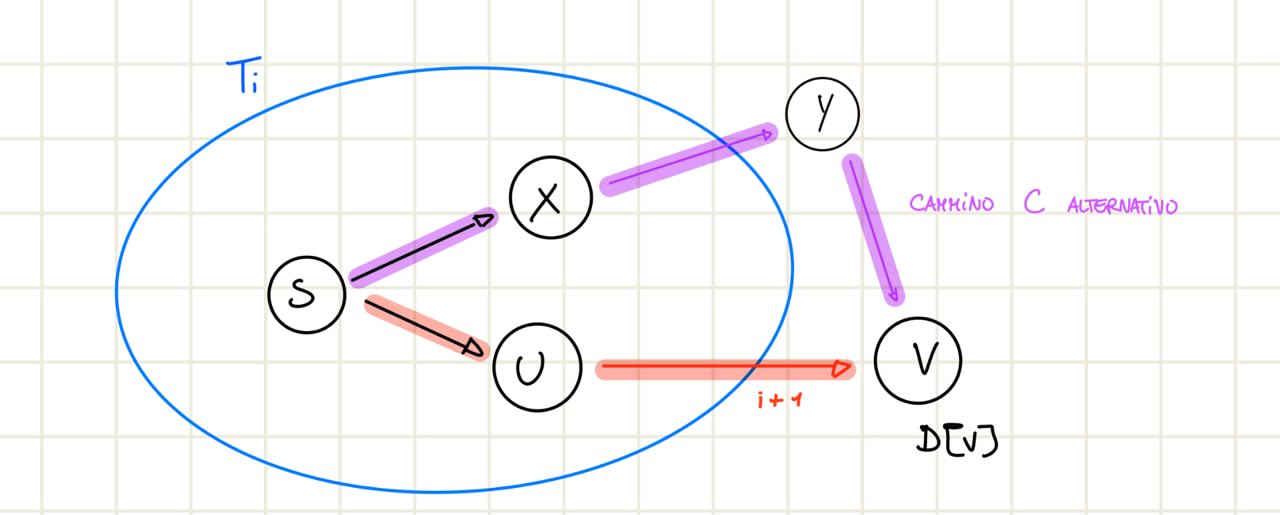 Ti
Y
X
CAMMINO C ALTERNATIVO
S
U
V
i+1
D[V]